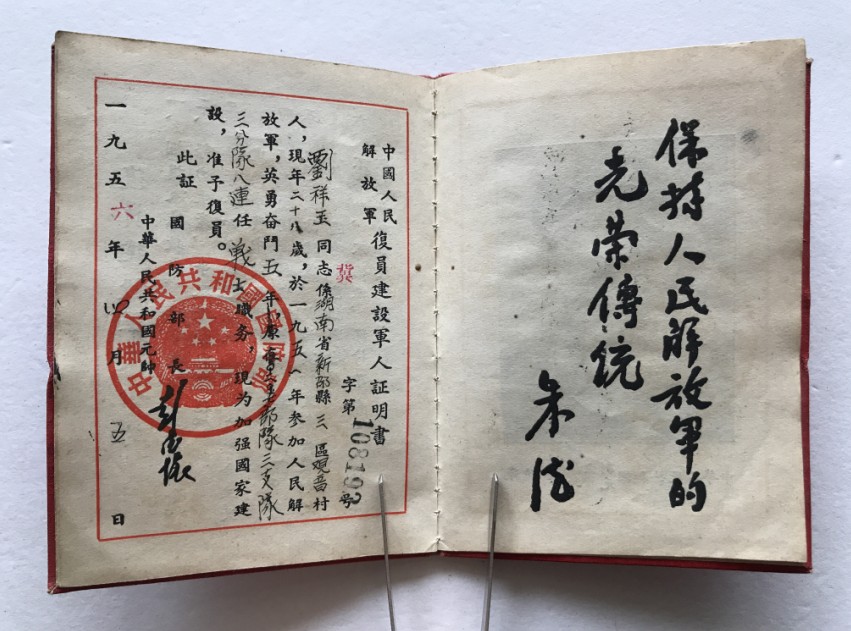 保持人民解放軍的
光荣傳統
朱德
中國人民
解放軍
復員建設軍人証明書
冀
字第108192号
劉祥玉同志係湖南省新邵縣三區观音村
人，現年二十八歲，於一九五一年参加人民解
放軍，英勇奋鬥五年
隊三支隊
三分隊八連任战士職务，現为加强國家建
設，准予復員。
此証
國防部長
中華人民共和國元帥
彭德懷
一九五六年四月五日
中華人民共和國國防部